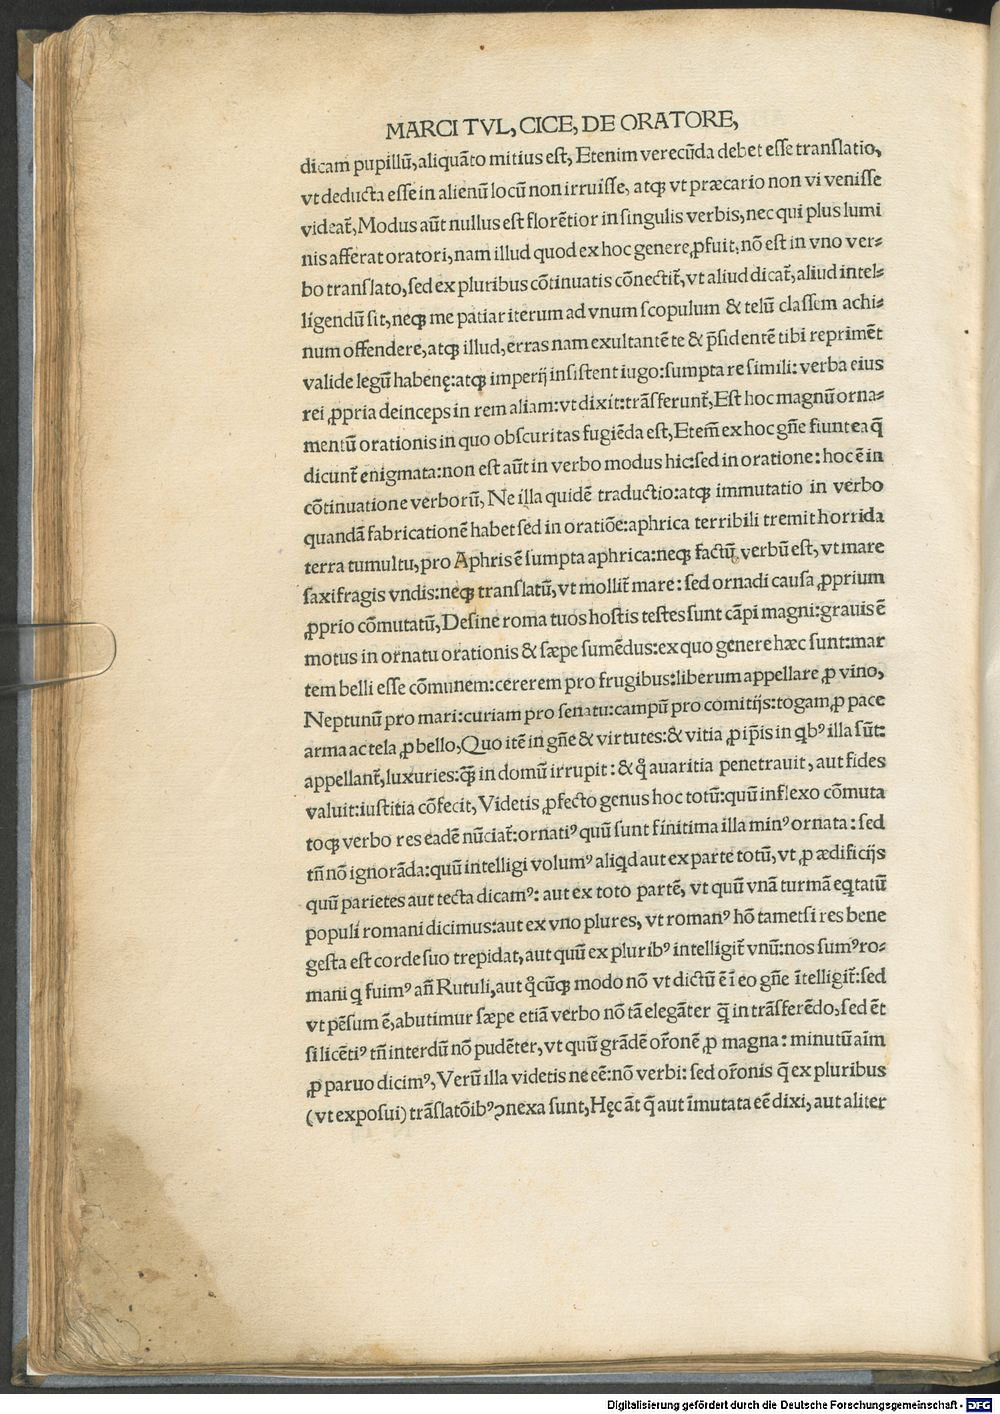 MARCI TVL, CICE, DE ORATORE,
dicam pupillū, aliquãto mitius est, Etenim verecũda debet esse translatio,
vt deducta esse in alienū locū non irruisse, atqꝫ vt præcario non vi venisse
videat᷑, Modus aūt nullus est florẽtior in singulis verbis, nec qui plus lumi
nis afferat oratori, nam illud quod ex hoc genere ꝓfuit, nõ est in vno ver⸗
bo translato, sed ex pluribus cõtinuatis cõnectit᷑, vt aliud dicat᷑, aliud intel⸗
ligendū sit, neqꝫ me patiar iterum ad vnum scopulum & telū classem achi⸗
num offendere, atqꝫ illud, erras nam exultantẽ te & p̄sidentẽ tibi reprimẽt
valide legū habenę: atqꝫ imperij insistent iugo: sumpta re simili: verba eius
rei ꝓpria deinceps in rem aliam: vt dixit: trãsferunt᷑, Est hoc magnū orna⸗
mentū orationis in quo obscuritas fugiẽda est, Etem̃ ex hoc gñe fiunt ea q̃
dicunt᷑ enigmata: non est aūt in verbo modus hic: sed in oratione: hoc ẽ in
cõtinuatione verborū, Ne illa quidẽ traductio: atqꝫ immutatio in verbo
quandã fabricationẽ habet sed in oratiõe: aphrica terribili tremit horrida
terra tumultu, pro Aphris ẽ sumpta aphrica: neqꝫ factū verbū est, vt mare
saxifragis vndis: neqꝫ translatū, vt mollit᷑ mare: sed ornadi causa ꝓprium
ꝓprio cõmutatū, Desine roma tuos hostis testes sunt cãpi magni: grauis ẽ
motus in ornatu orationis & sæpe sumẽdus: ex quo genere hæc sunt: mar
tem belli esse cõmunem: cererem pro frugibus: liberum appellare ꝓ vino,
Neptunū pro mari: curiam pro senatu: campū pro comitijs: togam, ꝓ pace
arma ac tela ꝓ bello, Quo itẽ in gñe & virtutes: & vitia ꝓ ip̃is in qbꝰ illa sūt:
appellant᷑, luxuries: q̃ꝫ in domū irrupit: & q̊ auaritia penetrauit, aut fides
valuit: iustitia cõfecit, Videtis ꝓfecto genus hoc totū: quū inflexo cõmuta
toqꝫ verbo res eadẽ nūciat᷑: ornatiꝰ quū sunt finitima illa minꝰ ornata: sed
tñ nõ ignorãda: quū intelligi volumꝰ aliqd aut ex parte totū, vt ꝓ ædificijs
quū parietes aut tecta dicamꝰ: aut ex toto partẽ, vt quū vnã turmã eqtatū
populi romani dicimus: aut ex vno plures, vt romanꝰ hõ tametsi res bene
gesta est corde suo trepidat, aut quū ex pluribꝰ intelligit᷑ vnū: nos sumꝰ ro⸗
mani q fuimꝰ añ Rutuli, aut q̊cūqꝫ modo nõ vt dictū ẽ ĩ eo gñe ĩtelligit᷑: sed
vt pẽsum ẽ, abutimur sæpe etiã verbo nõ tã elegãter q̃ in trãsferẽdo, sed ẽt
si licẽtiꝰ tñ interdū nõ pudẽter, vt quū grãdẽ or̃onẽ ꝓ magna: minutū aĩm
ꝓ paruo dicimꝰ, Verū illa videtis ne cẽ: nõ verbi: sed or̃onis q̃ ex pluribus
(vt exposui) trãslatõibꝰ ꝯnexa sunt, Hęc ãt q̃ aut ĩmutata eẽ dixi, aut aliter
Digitalisierung gefördert durch die Deutsche Forschungsgemeinschaft - DFG